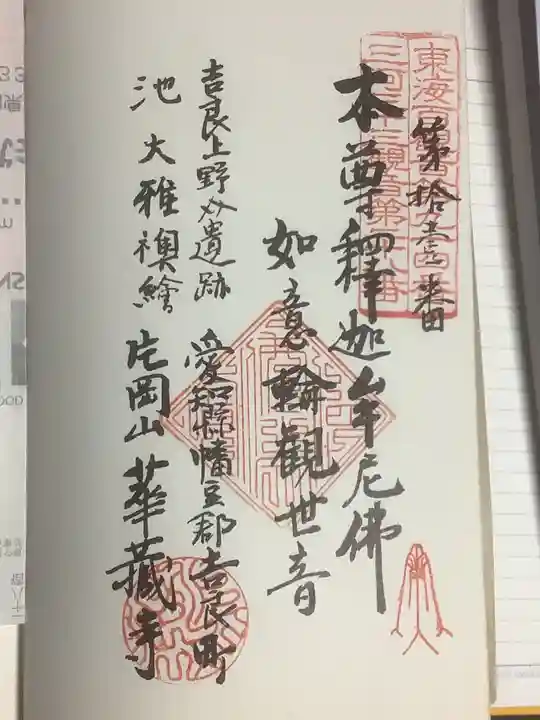 東海百観音第
三河三十三観音第 八番
第拾壹番
本尊釋迦牟尼佛
如意輪觀世音
愛知縣幡豆郡吉良町
吉良上野介遺跡
池大雅襖繪 片岡山華藏寺